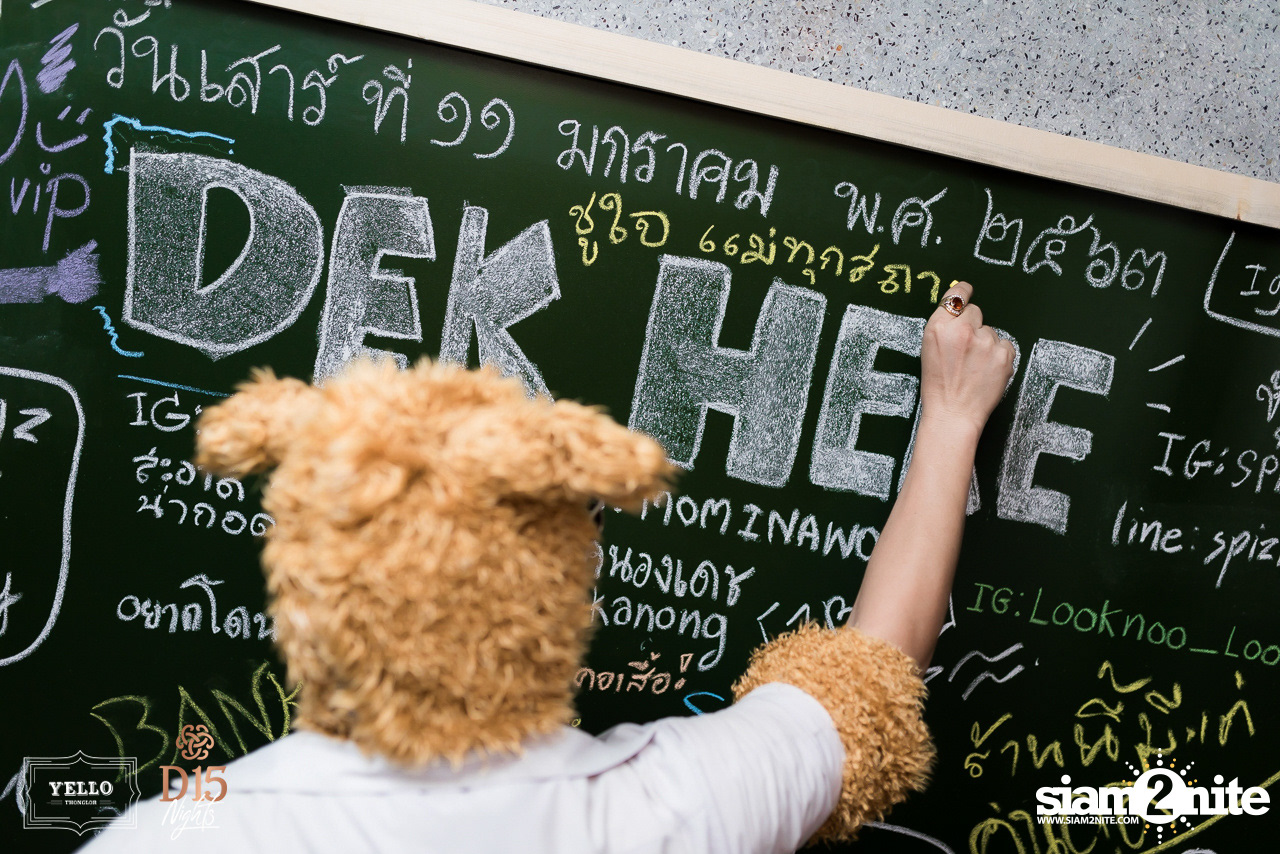 วันเสาร์ ที่ ๑๑ มกราคม พ.ศ. ๒๕๖๓
vip
DEK HERE
ชูใจ แม่ทุกสถา
IG:
สะอาด
น่ากอด
MOMINAWO
นองเดช
kanong
อยากโดน
คอเสื้อ!
IG: spi
line: spiz
IG: Looknoo_Loo
ร้านนี้มีเท่
BANK
YELLO
THONGLOR
D15
Nights
siam2nite
WWW.SIAM2NITE.COM